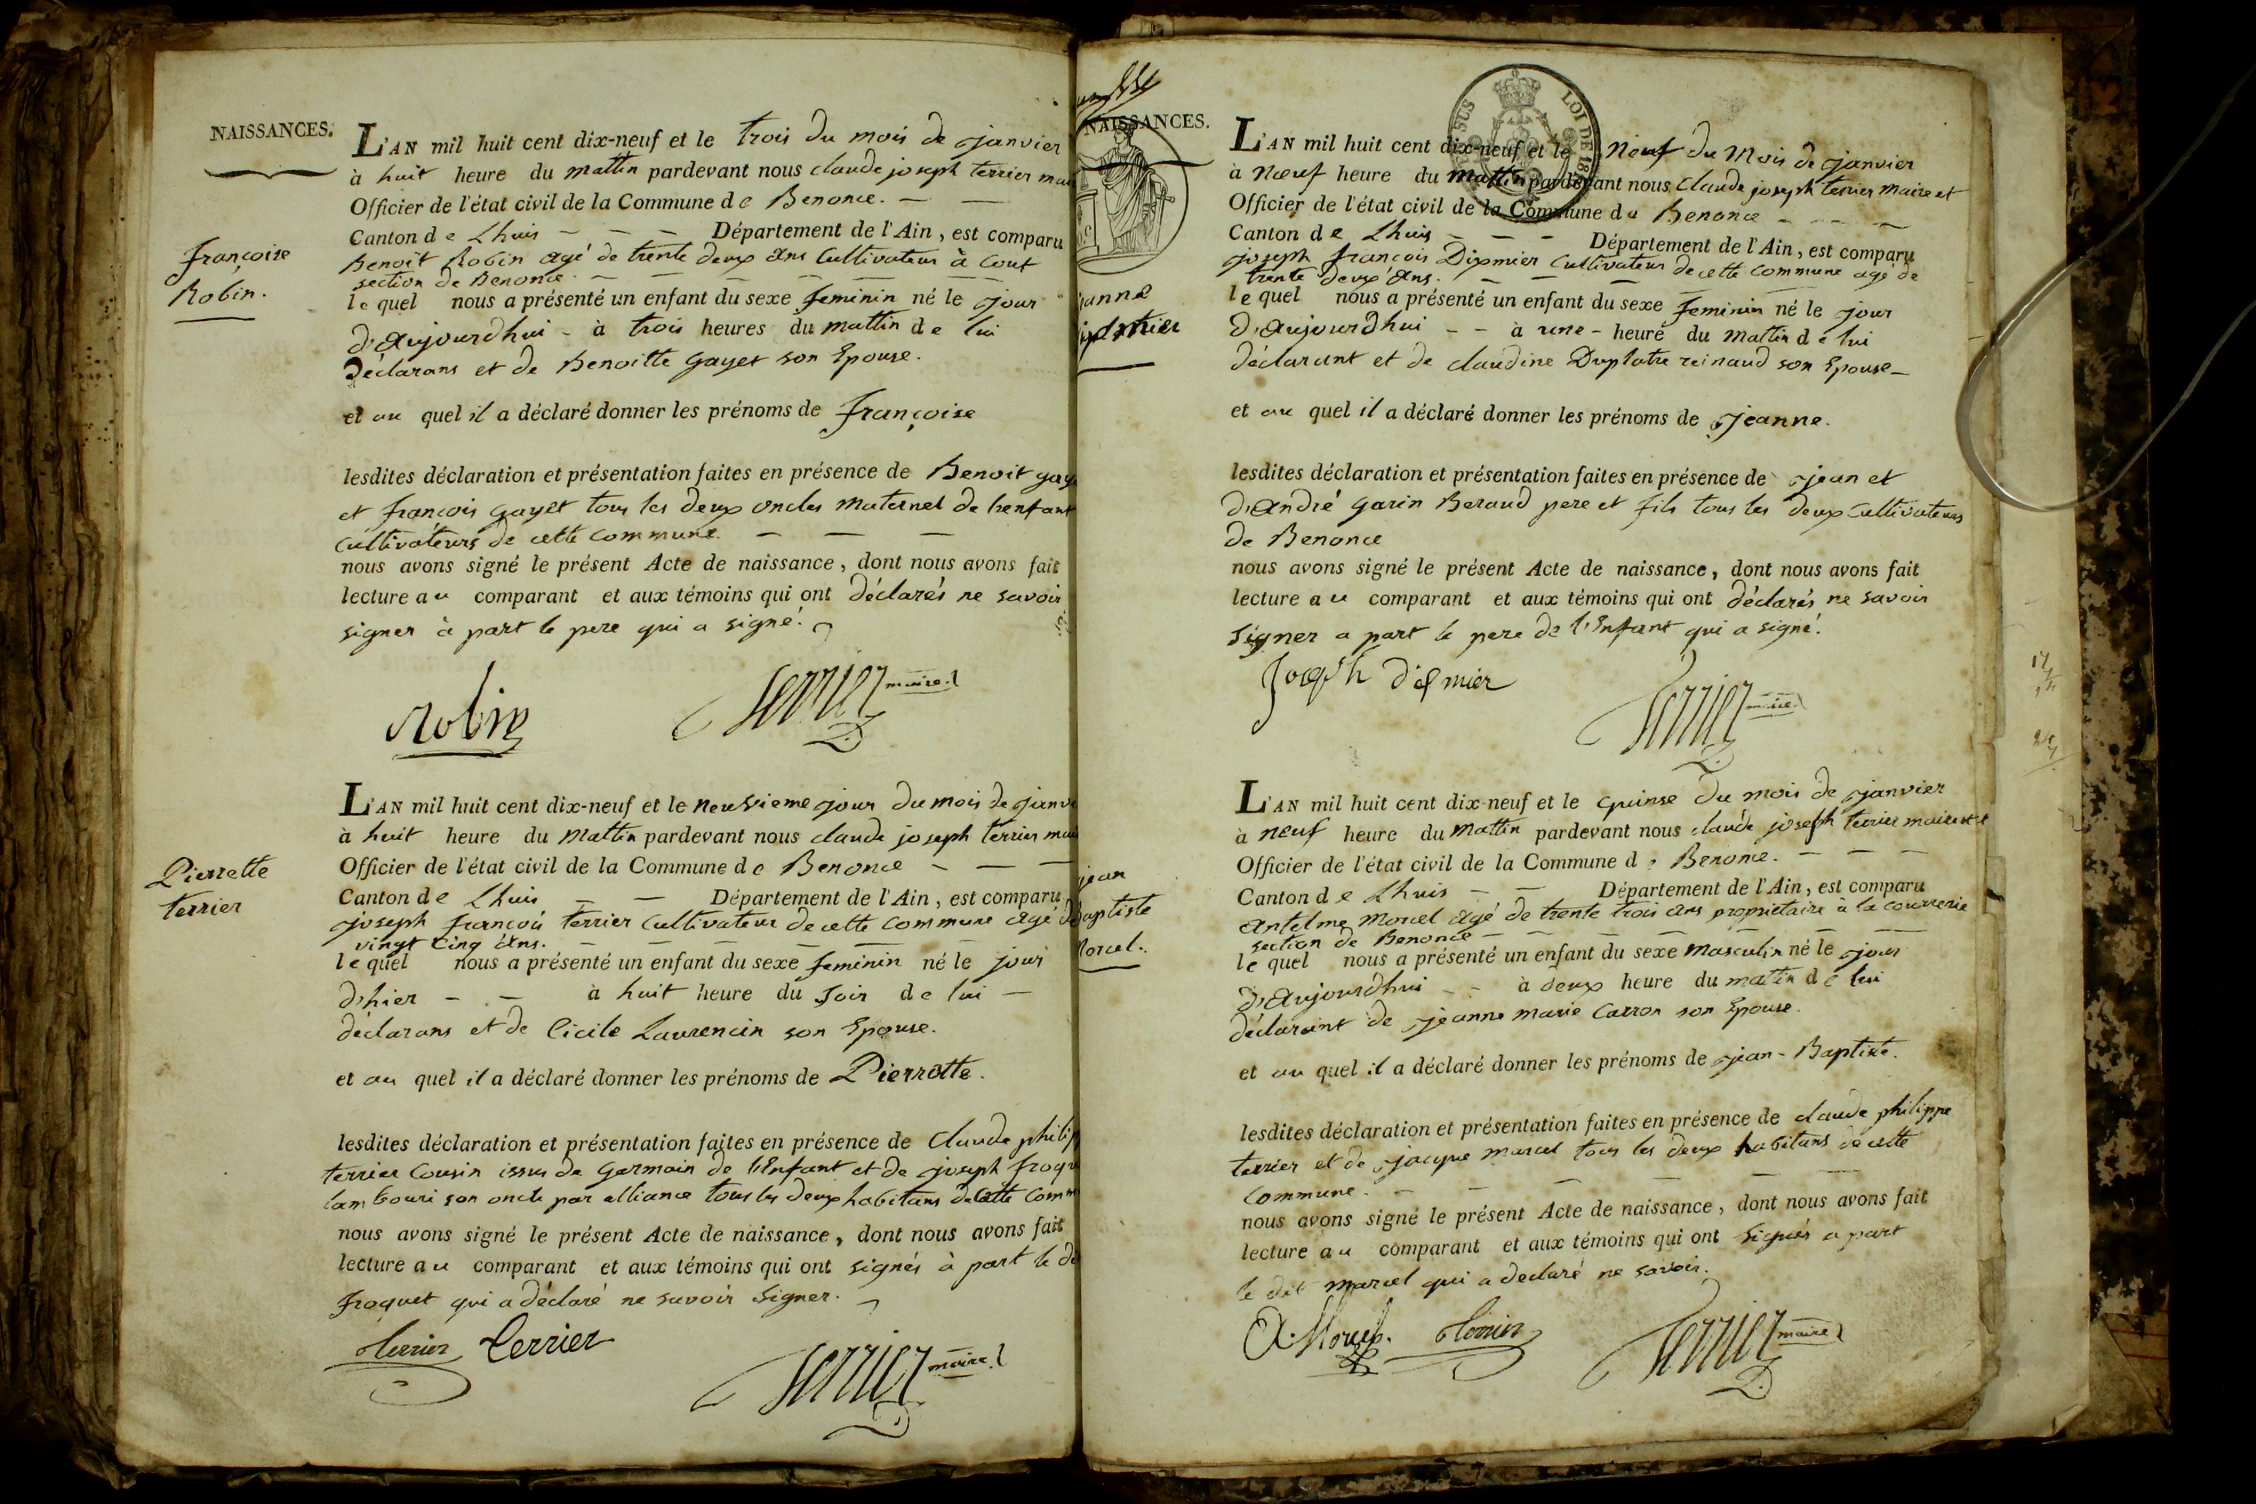 NAISSANCES.
L'AN mil huit cent dix-neuf et le trois du mois de janvier
à huit heure du mattin pardevant nous claude joseph terrier
Officier de l'état civil de la Commune de Benonce.
Canton de Lhuis Département de l'Ain, est comparu
Benoit Robin agé de trente deux ans Cultivateur à Cout
section de Benonce.
lequel nous a présenté un enfant du sexe feminin né le jour
d'Aujourdhui à trois heures du mattin de lui
Déclarans et de Benoitte Gayet son Epouse.
et au quel il a déclaré donner les prénoms de françoise
lesdites déclaration et présentation faites en présence de Benoit
et françois gayet tous les deux oncles maternel de l'enfant
Cultivateurs de cette commune.
nous avons signé le présent Acte de naissance, dont nous avons fait
lecture au comparant et aux témoins qui ont déclarés ne savoir
signer à part le pere qui a signé.
françoise
Robin.
Robin
Terrier maire
L'AN mil huit cent dix-neuf et le neuvieme jour du mois de
à huit heure du Mattin pardevant nous claude joseph terrier
Officier de l'état civil de la Commune de Benonce
Canton de Lhuis Département de l'Ain, est comparu
joseph françois terrier Cultivateur de cette commune agé de
vingt cinq ans.
lequel nous a présenté un enfant du sexe feminin né le jour
d'hier à huit heure du soir de lui
déclarans et de Cicile Laurencin son Epouse.
et au quel il a déclaré donner les prénoms de Pierrette.
lesdites déclaration et présentation faites en présence de Claude
terrier Cousin issus de Germain de l'Enfant et de joseph
son oncle par alliance tous les deux habitans de cette
nous avons signé le présent Acte de naissance, dont nous avons fait
lecture au comparant et aux témoins qui ont signés à part le
froquet qui a déclaré ne savoir Signer.
Pierrette
terrier
Terrier Terrier
Terrier maire
NAISSANCES.
LOI DE 18
L'AN mil huit cent dix-neuf et le Neuf du Mois de janvier
à Nœuf heure du Mattin pardevant nous Claude joseph terrier Maire et
Officier de l'état civil de la Commune de Benonce
Canton de Lhuis Département de l'Ain, est comparu
joseph françois Dixmier Cultivateur de cette commune agé de
trente deux ans.
lequel nous a présenté un enfant du sexe feminin né le jour
d'Aujourdhui à une heure du mattin de lui
déclarant et de claudine Duplatre reinaud son Epouse
et au quel il a déclaré donner les prénoms de Jeanne.
lesdites déclaration et présentation faites en présence de jean et
d'André Garin Beraud pere et fils tous les deux Cultivateurs
de Benonce
nous avons signé le présent Acte de naissance, dont nous avons fait
lecture au comparant et aux témoins qui ont déclarés ne savoir
Signer a part le pere de l'Enfant qui a signé.
Joseph dixmier
Terrier maire
L'AN mil huit cent dix-neuf et le quinse du mois de janvier
à neuf heure du Mattin pardevant nous claude joseph terrier maire et
Officier de l'état civil de la Commune de Benonce.
Canton de Lhuis Département de l'Ain, est comparu
Antelme Morcel agé de trente trois ans proprietaire à la courrerie
section de Benonce
lequel nous a présenté un enfant du sexe Masculin né le jour
d'Aujourdhui à deux heure du mattin de lui
déclarant de jeanne Marie Carron son Epouse.
et au quel il a déclaré donner les prénoms de jean-Baptiste.
lesdites déclaration et présentation faites en présence de claude philippe
terrier et de jacque marcel tous les deux habitans de cette
Commune.
nous avons signé le présent Acte de naissance, dont nous avons fait
lecture au comparant et aux témoins qui ont signés a part
le dit marcel qui a declaré ne savoir.
jean
Baptiste
Morcel.
A. Morcel. Terrier
Terrier maire